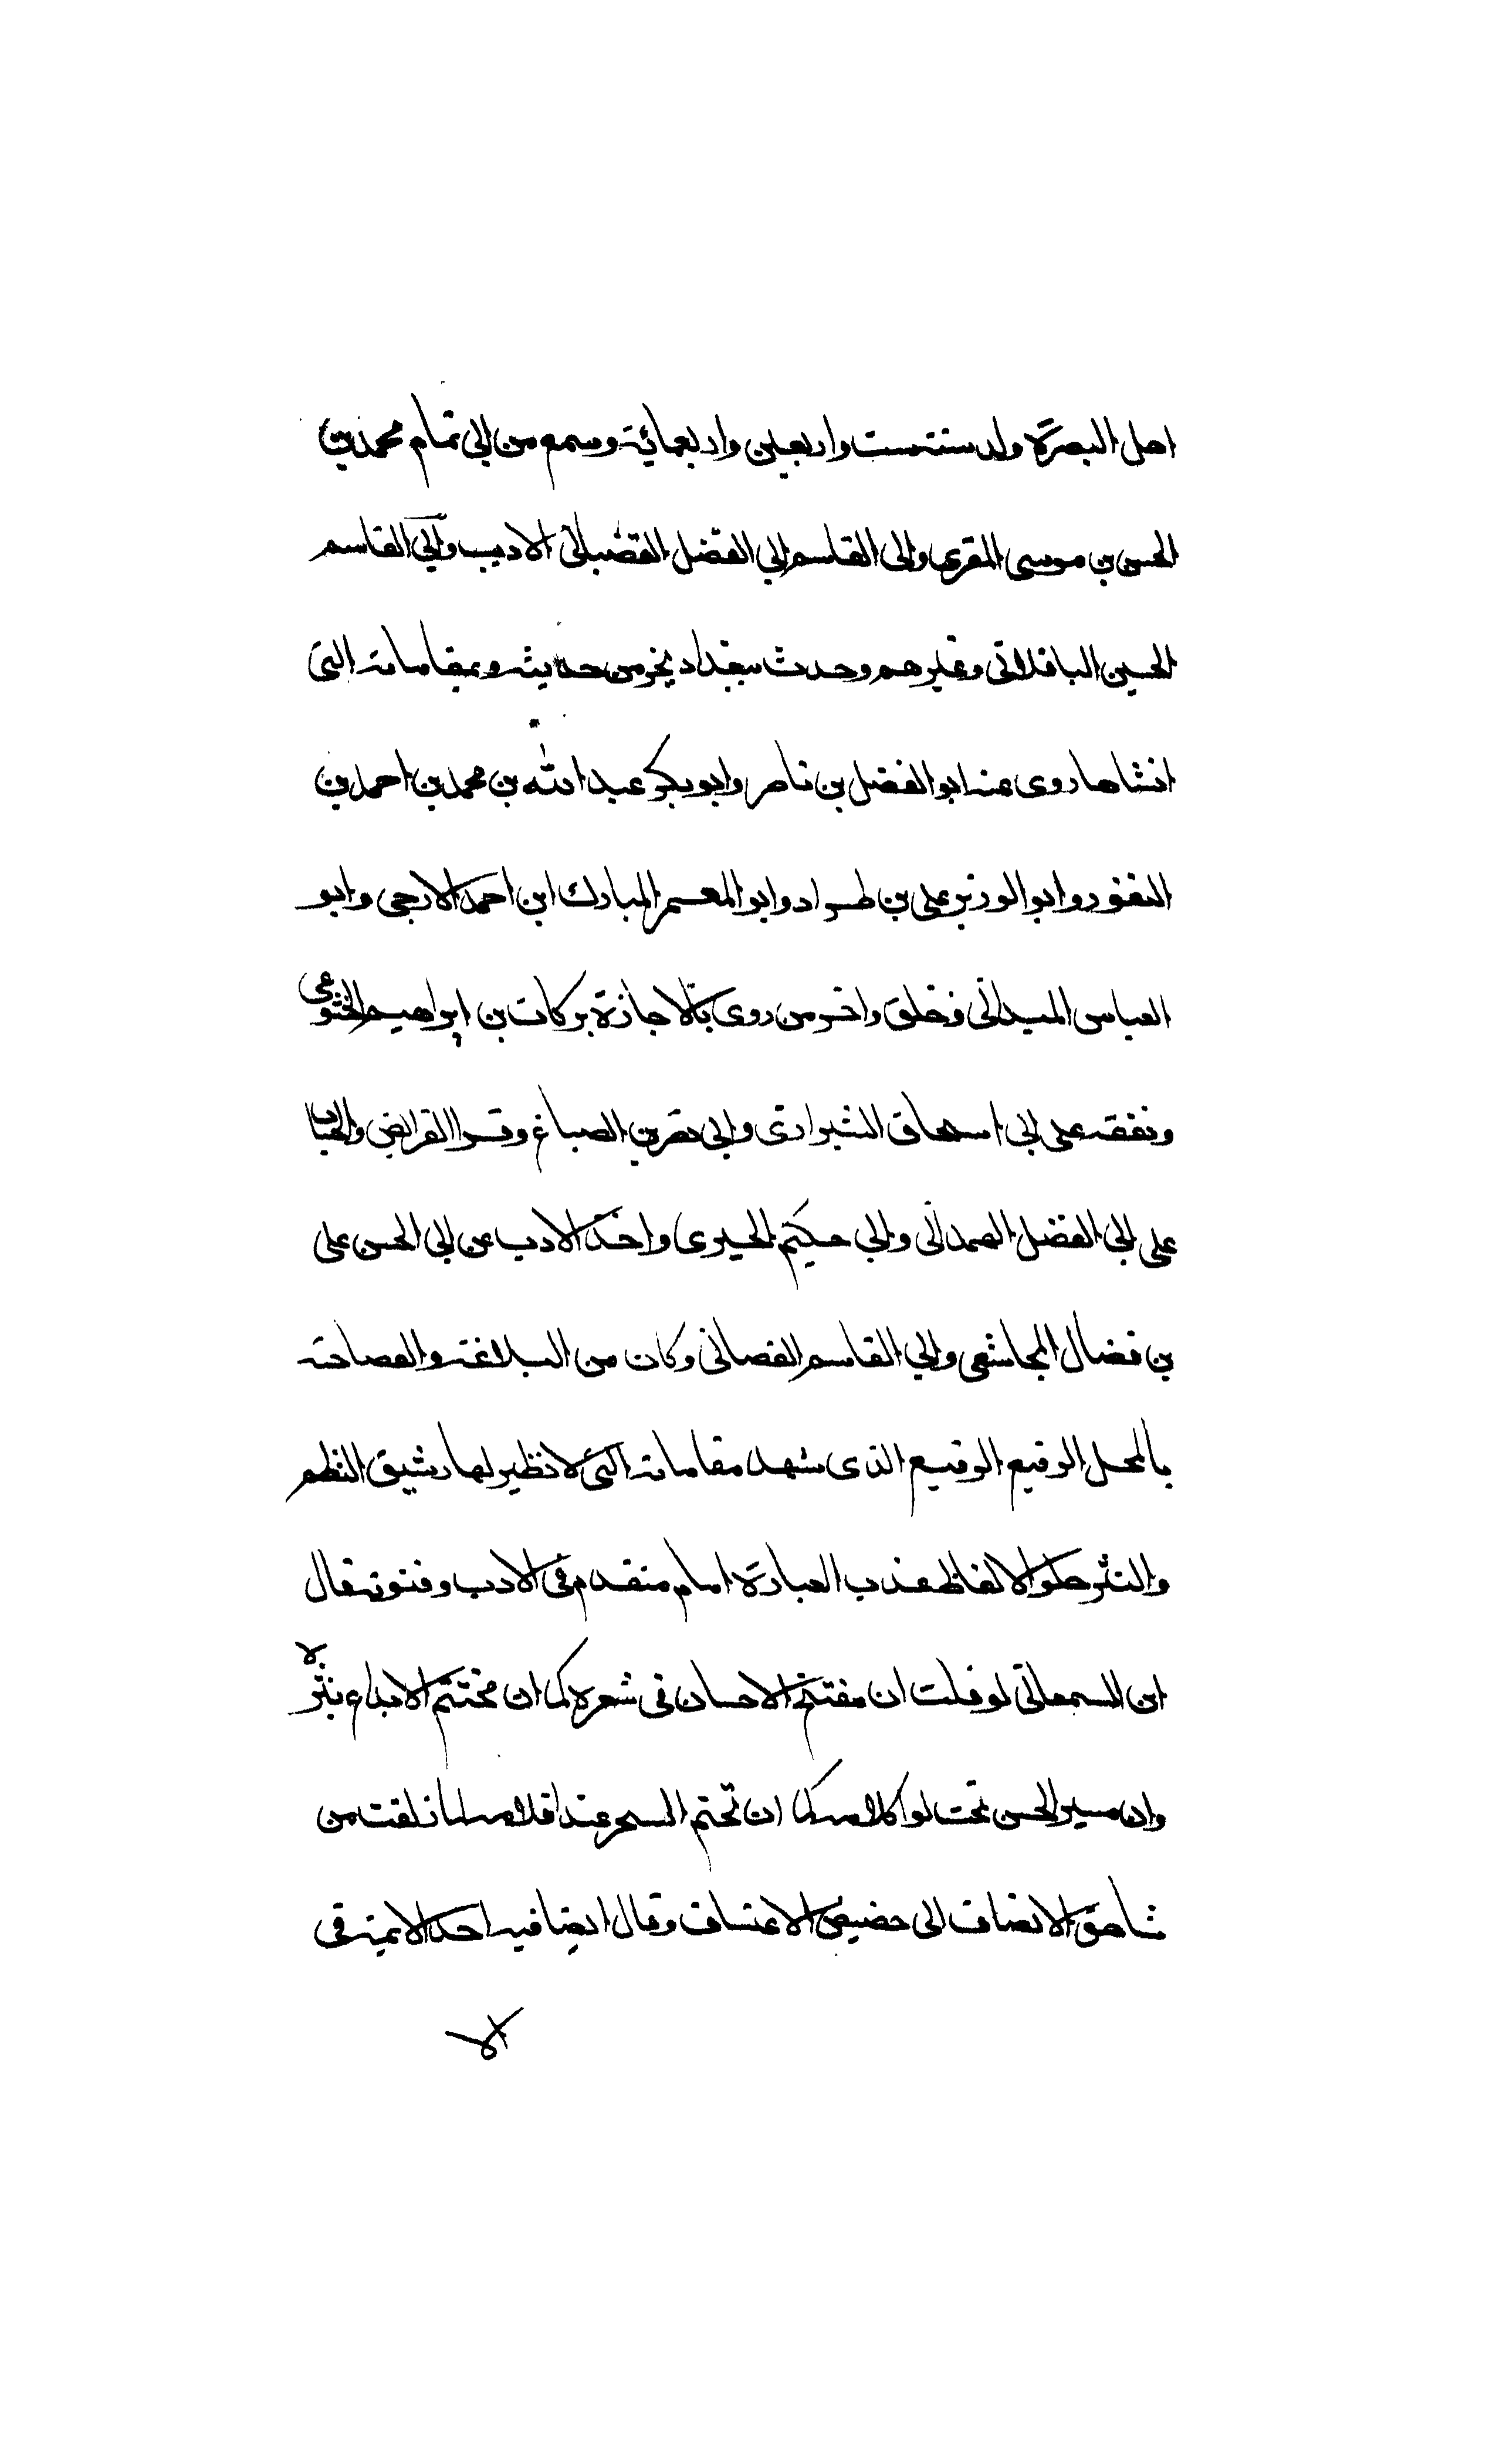 اهل البصرة ولد سنة ست واربعين واربعمائة وسمع من ابي تمام محمد بن
الحسن بن موسى المقري وابي القاسم ابي الفضل القصباني الاديب وابي القاسم
الحسين الباقلاني وغيرهم وحدث ببغداد بجزء من حديثه وبمقاماته التي
انشاها روى عنه ابو الفضل بن ناصر وابو بكر عبد الله بن محمد بن احمد بن
النقور وابو الوزير علي بن طراد وابو المعمر المبارك ابن احمد الازجي وابو
العباس الميداني وخلق واخر من روى بالاجازة بركات بن ابراهيم الخشوعي
وتفقه على ابي اسحاق الشيرازي وابي نصر بن الصباغ وقرا الفرايض والحساب
على ابي الفضل الهمداني وابي حكيم الخيري واخذ الادب عن ابي الحسن علي
بن فضال المجاشعي وابي القاسم القصباني وكان من البلاغة والفصاحة
بالمحل الرفيع الرفيع الذي شهد مقاماته التي لا نظير لها رشيق النظم
والنثر حلو الالفاظ عذب العبارة امام متقدم في الادب وفنونه قال
ابن السمعاني لو قلت ان مفتتح الاحسان في شعره كما ان مختتم الابداع بنثره
وان مسير الحسن تحت لوا كلامه كما ان تختم السحر عند اقلامه لما زلقت من
شاهق الانصاف الى حضيض الاعتساف وقال ايضا فيه احد الايمة في
الا